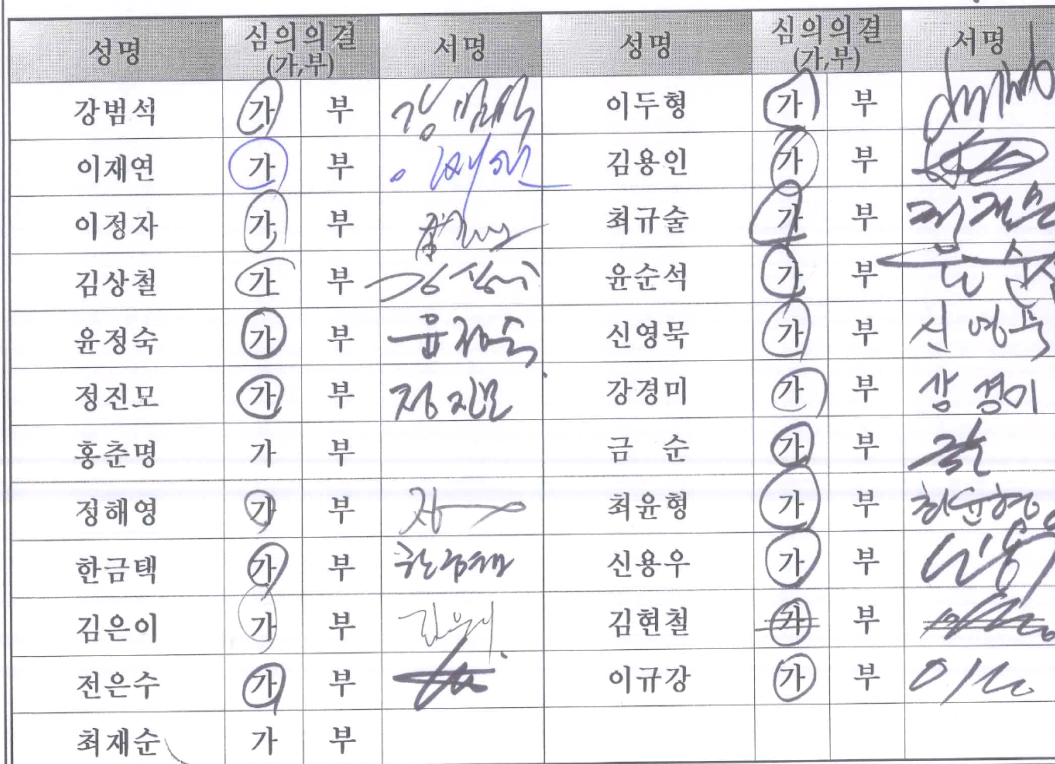 성명 심의의결 서명 성명 심의의결 서명
(가,부) (가,부)
강범석 가 부 강범석 이두형 가 부
이재연 가 부 이재연 김용인 가 부
이정자 가 부 최규술 가 부
김상철 가 부 윤순석 가 부 윤순석
윤정숙 가 부 윤정숙 신영묵 가 부 신영묵
정진모 가 부 정진모 강경미 가 부 강경미
홍춘명 가 부 금 순 가 부 금순
정해영 가 부 최윤형 가 부 최윤형
한금택 가 부 한금택 신용우 가 부 신용우
김은이 가 부 김은이 김현철 가 부
전은수 가 부 이규강 가 부
최재순 가 부